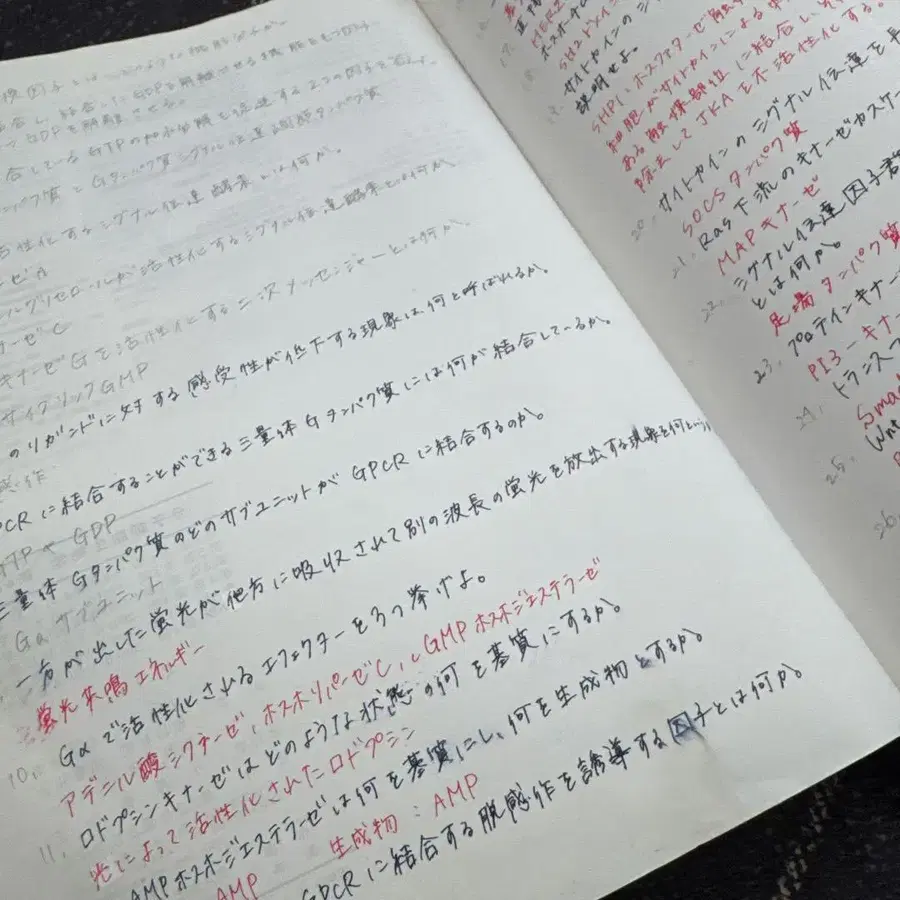 結合し、結合したGDPを解離させる機能をもつ
GDPを解離させる。
合しているGTPの加水分解を促進する2つの因子を答えよ。
ンパク質とGタンパク質シグナル伝達調節タンパク質
活性化するシグナル伝達酵素とは何か。
ゼA
ルグリセロールが活性化するシグナル伝達酵素とは何か。
ーゼC
キナーゼGを活性化する二次メッセンジャーとは何か。
サイクリックGMP
のリガンドに対する感受性が低下する現象は何と呼ばれるか。
感作
PCRに結合することができる三量体Gタンパク質には何が結合しているか。
GTPやGDP
三量体Gタンパク質のどのサブユニットがGPCRに結合するのか。
Gαサブユニット
一方が出した蛍光が他方に吸収されて別の波長の蛍光を放出する現象を何という
蛍光共鳴エネルギー
10. Gαで活性化されるエフェクターを3つ挙げよ。
アデニル酸シクラーゼ、ホスホリパーゼC、cGMPホスホジエステラーゼ
11. ロドプシンキナーゼはどのような状態の何を基質にするか。
光によって活性化されたロドプシン
AMPホスホジエステラーゼは何を基質にし、何を生成物とするか。
AMP 生成物：AMP
GPCRに結合する脱感作を誘導する因子とは何か。
17.
SH2ドメイン
サイトカインのシ
説明せよ。
SHP1:ホスファターゼ
細胞がサイトカインによる
ある触媒部位に結合し、
除去してJKAを不活性化する。
20. サイトカインのシグナル伝達を
SOCSタンパク質
21. Ras下流のキナーゼカスケー
MAPキナーゼ
22. シグナル伝達因子群
とは何か。
足場タンパク質
23. プロテインキナー
PI3-キナー
24. トランスフ
Smad
25. Wnt
26.